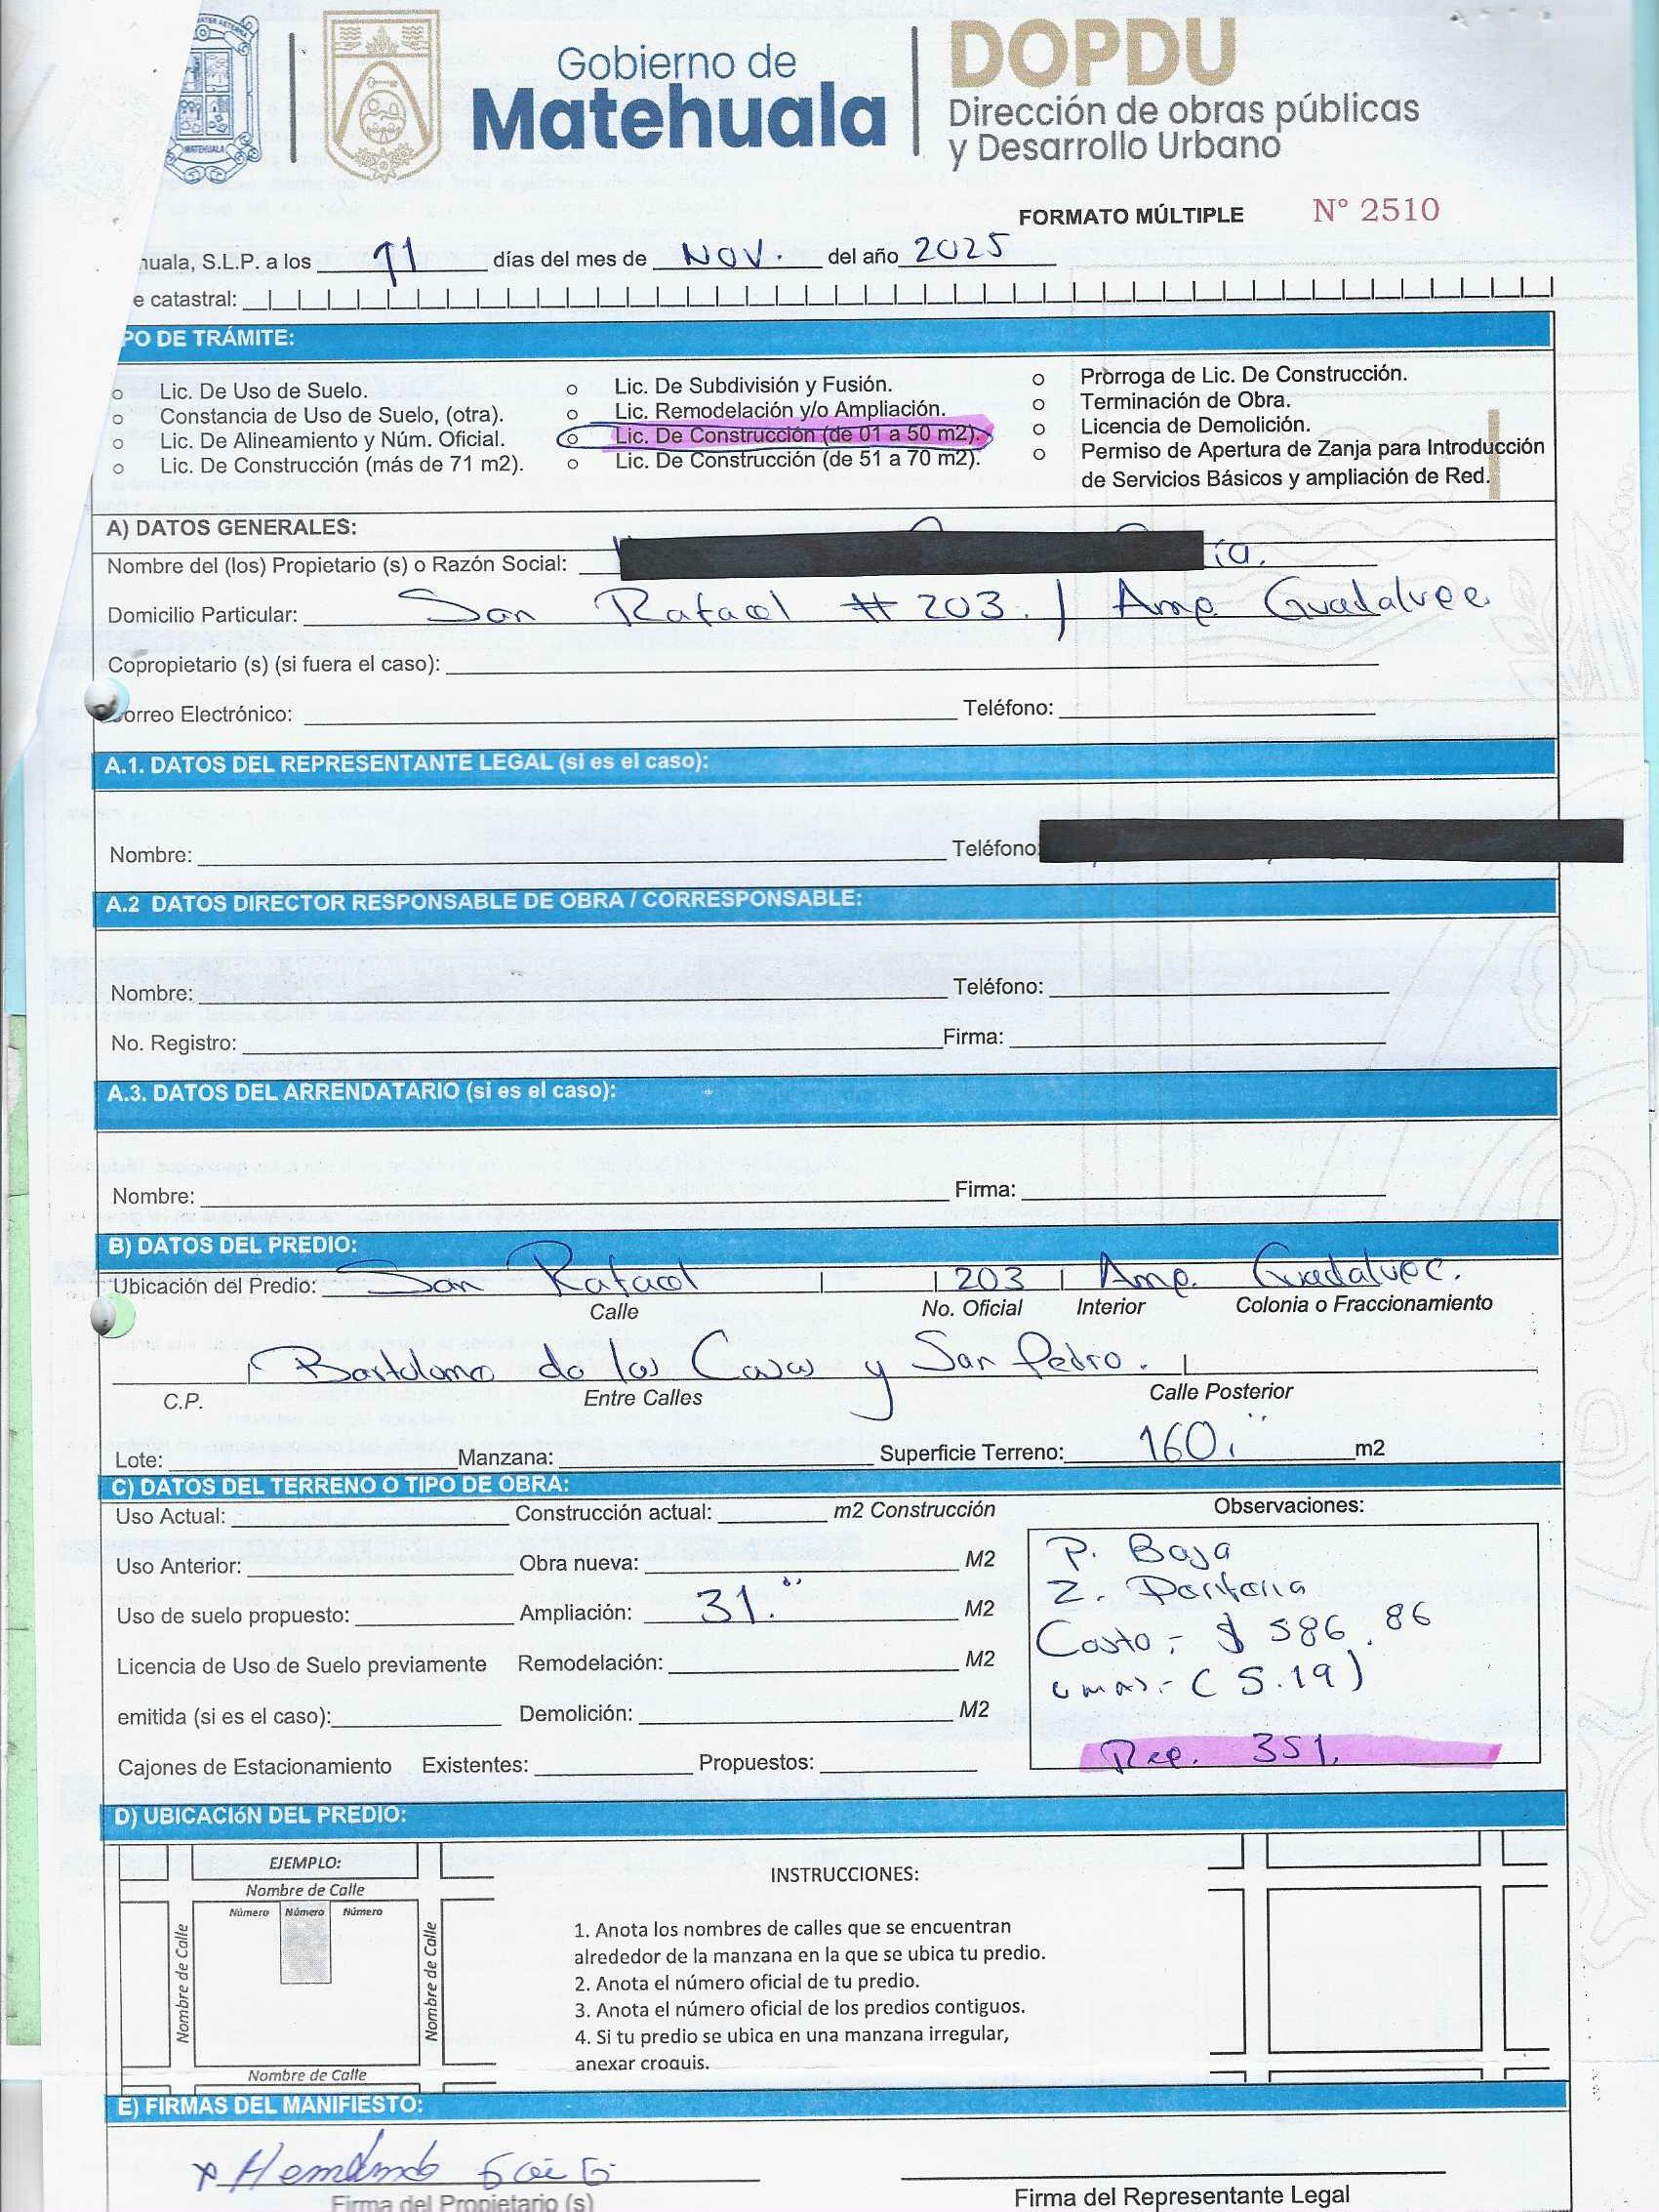 MATEHUALA
Gobierno de
Matehuala
DOPDU
Dirección de obras públicas
y Desarrollo Urbano
FORMATO MÚLTIPLE N° 2510
huala, S.L.P. a los 11 días del mes de Nov. del año 2025
e catastral:
PO DE TRÁMITE:
Lic. De Uso de Suelo.
Constancia de Uso de Suelo, (otra).
Lic. De Alineamiento y Núm. Oficial.
Lic. De Construcción (más de 71 m2).
Lic. De Subdivisión y Fusión.
Lic. Remodelación y/o Ampliación.
Lic. De Construcción (de 01 a 50 m2).
Lic. De Construcción (de 51 a 70 m2).
Prórroga de Lic. De Construcción.
Terminación de Obra.
Licencia de Demolición.
Permiso de Apertura de Zanja para Introducción
de Servicios Básicos y ampliación de Red.
A) DATOS GENERALES:
Nombre del (los) Propietario (s) o Razón Social: ía.
Domicilio Particular: San Rafael # 203. / Amp. Guadalupe
Copropietario (s) (si fuera el caso):
orreo Electrónico: Teléfono:
A.1. DATOS DEL REPRESENTANTE LEGAL (si es el caso):
Nombre: Teléfono:
A.2 DATOS DIRECTOR RESPONSABLE DE OBRA / CORRESPONSABLE:
Nombre: Teléfono:
No. Registro: Firma:
A.3. DATOS DEL ARRENDATARIO (si es el caso):
Nombre: Firma:
B) DATOS DEL PREDIO:
Ubicación del Predio: San Rafael 203 Amp. Guadalupe.
Calle No. Oficial Interior Colonia o Fraccionamiento
Bartolome de las Casas y San Pedro.
C.P. Entre Calles Calle Posterior
Lote: Manzana: Superficie Terreno: 160. m2
C) DATOS DEL TERRENO O TIPO DE OBRA:
Uso Actual: Construcción actual: m2 Construcción
Uso Anterior: Obra nueva: M2
Uso de suelo propuesto: Ampliación: 31. M2
Licencia de Uso de Suelo previamente Remodelación: M2
emitida (si es el caso): Demolición: M2
Cajones de Estacionamiento Existentes: Propuestos:
Observaciones:
P. Baja
Costo.- $ 586.86
umas.- (5.19)
Rep. 351.
D) UBICACIóN DEL PREDIO:
EJEMPLO:
Nombre de Calle
Número Número Número
Nombre de Calle
Nombre de Calle
Nombre de Calle
INSTRUCCIONES:
1. Anota los nombres de calles que se encuentran
alrededor de la manzana en la que se ubica tu predio.
2. Anota el número oficial de tu predio.
3. Anota el número oficial de los predios contiguos.
4. Si tu predio se ubica en una manzana irregular,
anexar croquis.
E) FIRMAS DEL MANIFIESTO:
Firma del Propietario (s)
Firma del Representante Legal